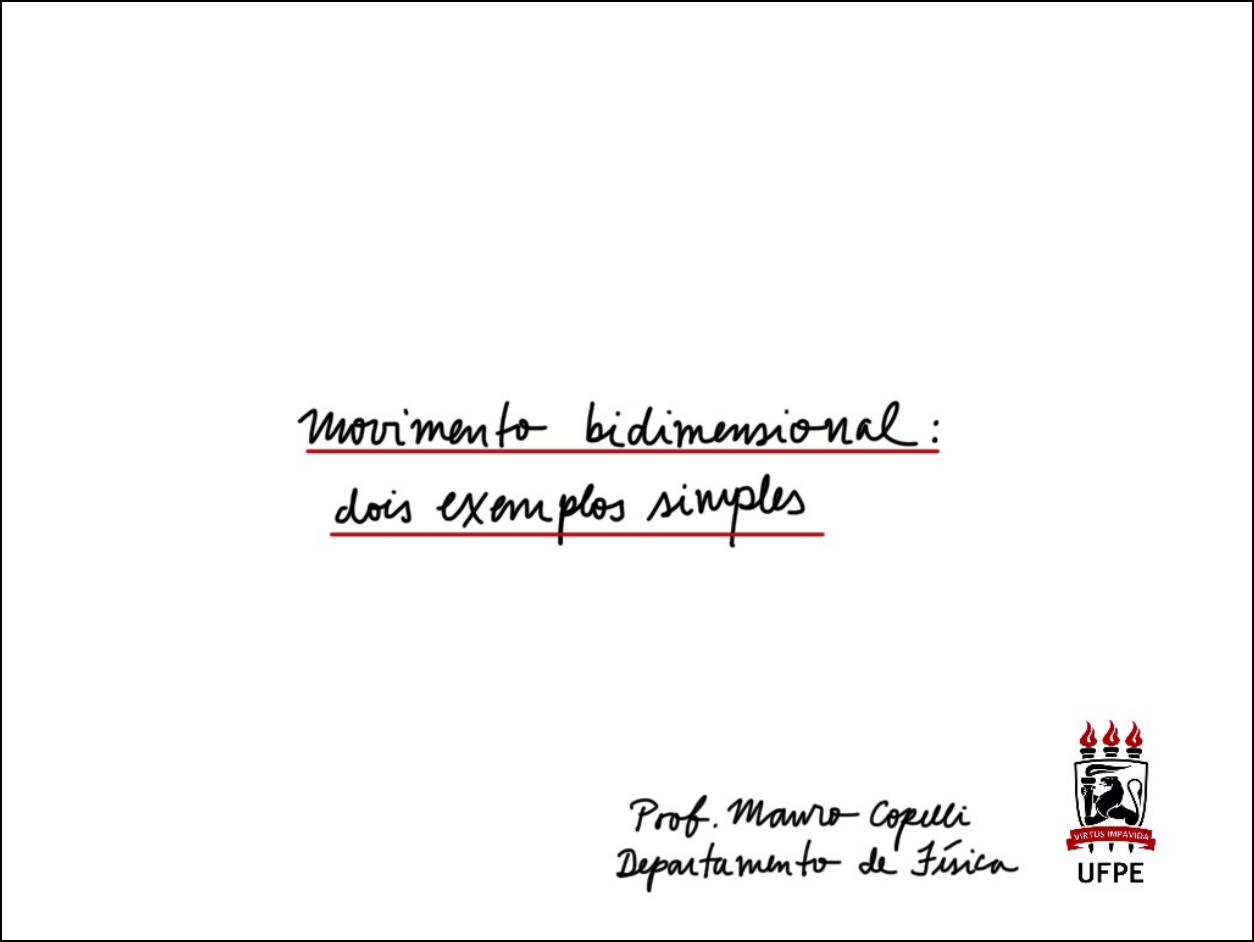 Movimento bidimensional:
dois exemplos simples
Prof. Mauro Copelli
Departamento de Física
VIRTUS IMPAVIDA
UFPE